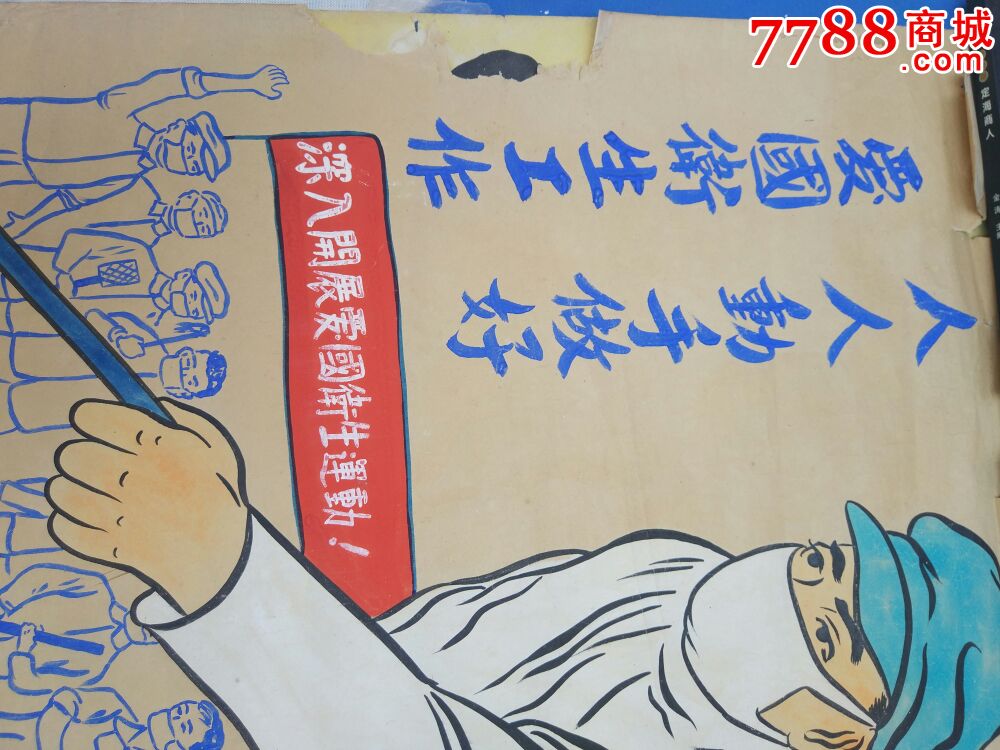 7788商城
.com
人人動手做好
愛國衛生工作
深入開展愛國衛生運動！
定海商人